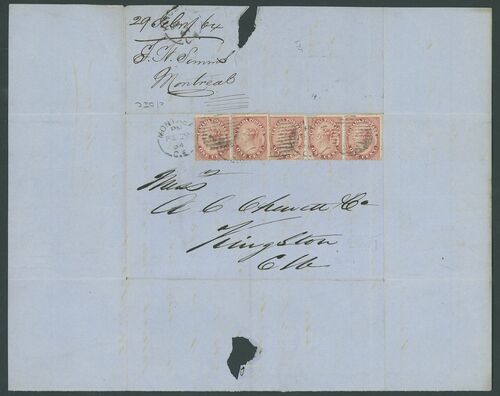 29 Feby 64
J. H. Simms
Montreal
MONTREAL
64
C.E.
Mess
A C Chewett & Co
Kingston
CW